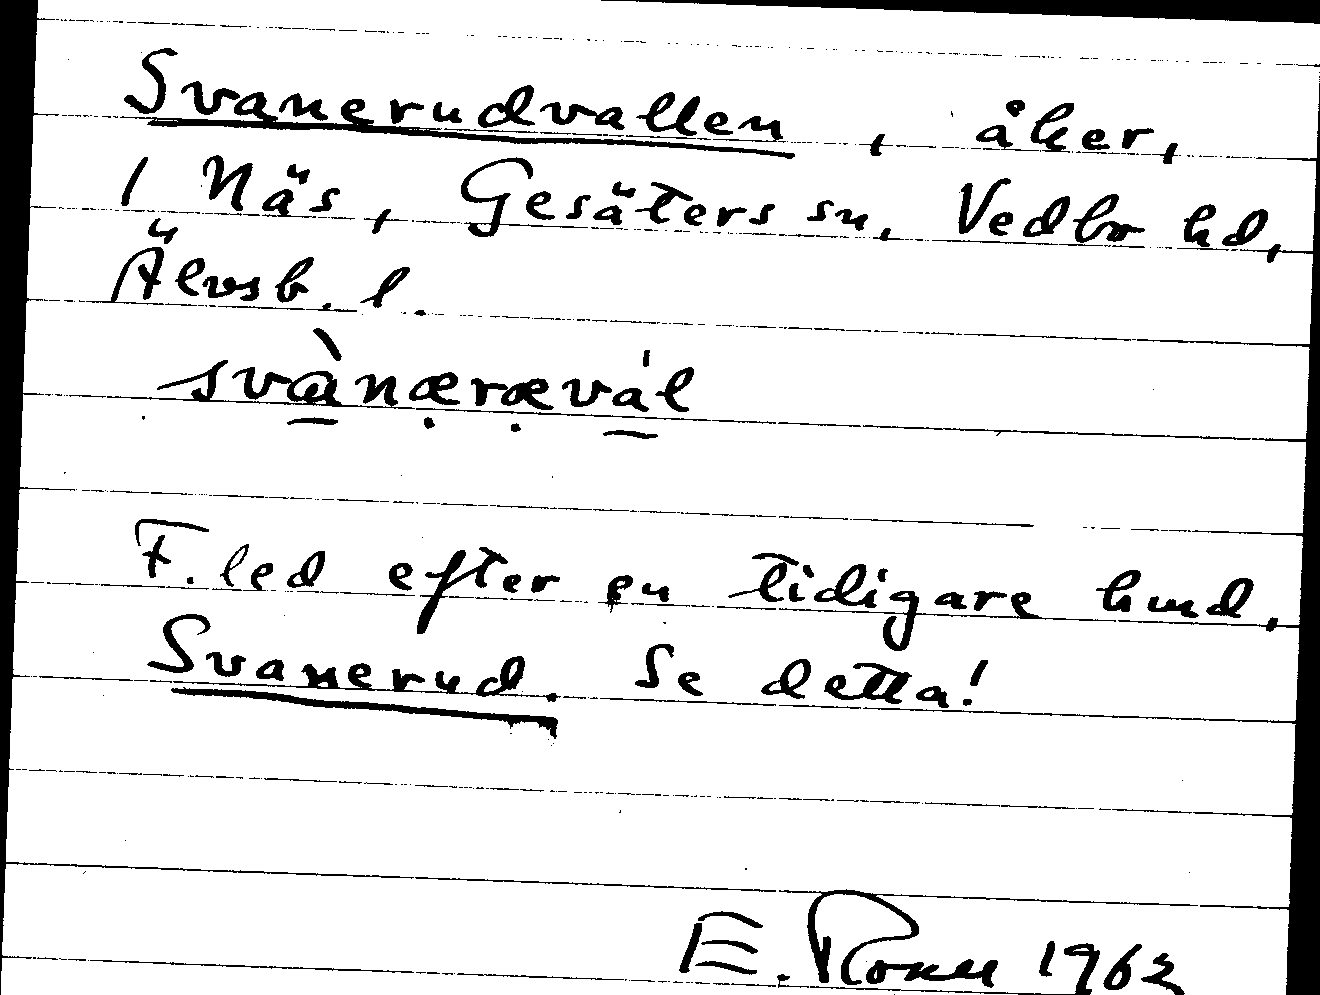 Svanerudvallen, åker,
1 Näs, Gesäters sn, Vedbo hd,
Älvsb. l.
svànærævál
F. led efter en tidigare hmd,
Svanerud. Se detta!
E. 1962